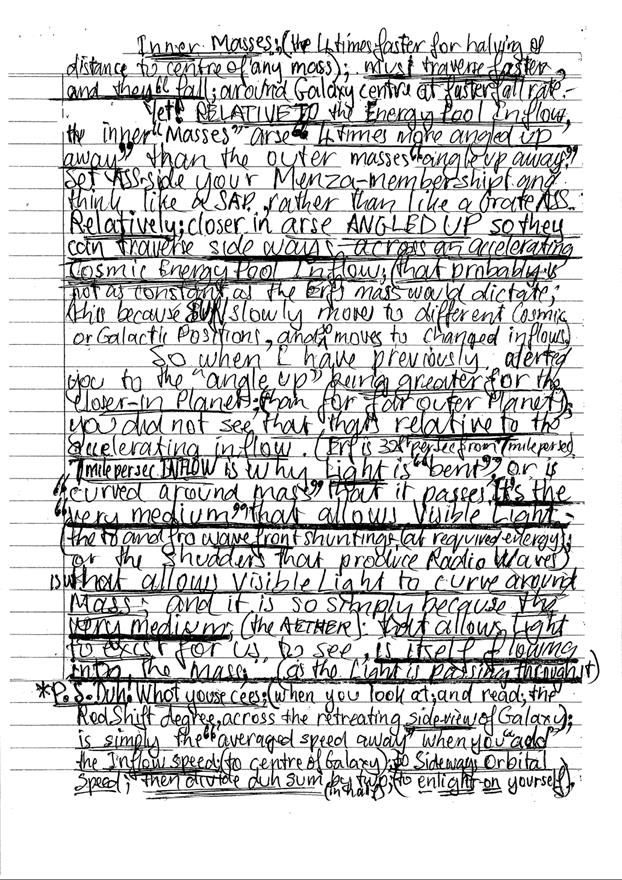 Inner Masses; (the 4 times faster for halving of
distance to centre of any mass); must traverse faster,
and they "fall; around Galaxy centre at faster fall rate.-
Yet! RELATIVE TO the Energy Pool Inflow,
the inner "Masses" arse "4 times more angled up
away" than the outer masses "angle up away."
Set ASS-side your Menza-membership and
think like a SAP, rather than like a Grate ASS.
Relatively; closer in arse ANGLED UP so they
can traverse side ways - across an accelerating
Cosmic Energy Pool Inflow; (that probably is
not as constant, as the mass would dictate;
this because SUN slowly moves to different Cosmic
or Galactic Positions, and moves to changed inflows,
So when I have previously alerted
you to the "angle up" being greater for the
closer-in Planet; than for far outer Planet);
you did not see that that's relative to the
accelerating inflow. (Erf is per sec from 7 mile per sec.
7 mile per sec. INFLOW is why Light is "bent", or is
"curved around mass" that it passes. It's the
"very medium" that allows Visible Light -
(the to and fro wave front shuntings (at required energy);
or the Shudders that produce Radio Waves)
is what allows Visible Light to curve around
Mass; and it is so simply because the
very medium; (the AETHER): that allows Light
to exist for us to see, is itself flowing
into the Mass." (as the Light is passing through it)
*P.S. Duh! What youse cees; (when you look at, and read; the
Red Shift degree, across the retreating side-view of Galaxy);
is simply the "averaged speed away" when you "add"
the Inflow speed; (to centre of Galaxy); to Sideway Orbital
Speed; then divide duh sum by two; (to enlight-on yourself).
(in half)